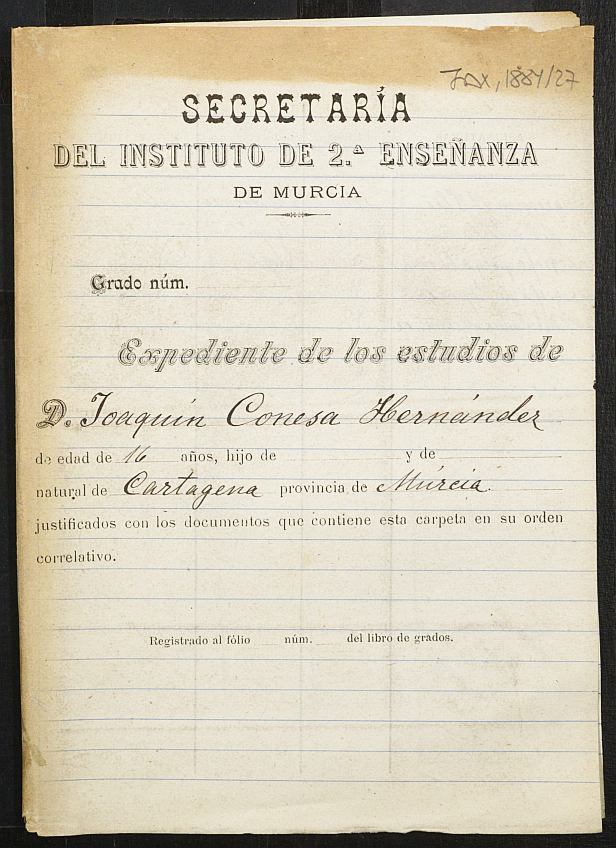 JAX, 1884/27
SECRETARÍA
DEL INSTITUTO DE 2.ª ENSEÑANZA
DE MURCIA
Grado núm.
Expediente de los estudios de
D. Joaquín Conesa Hernández
de edad de 16 años, hijo de y de
natural de Cartagena provincia de Múrcia.
justificados con los documentos que contiene esta carpeta en su orden
correlativo.
Registrado al fólio núm. del libro de grados.